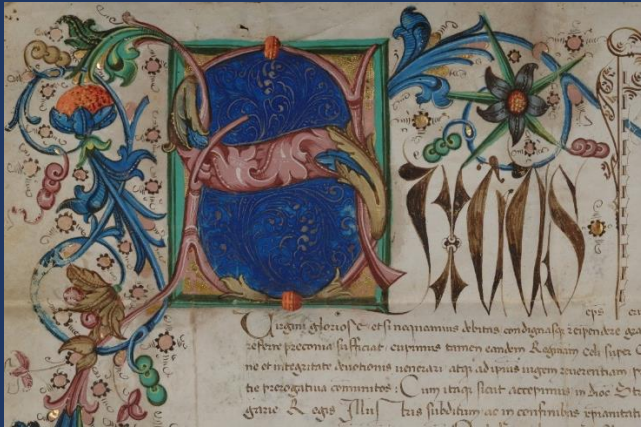 SIXTUS
eps
Virgini gloriose etsi nequamus debitas condignasqz rependere gra
referre preconia sufficiat: cupimus tamen eandem Reginam celi super
ne et integritate deuotionis uenerari atqz ad ipius reuerentiam
tie prerogatiua communitos: Cum itaqz sicut accepimus in dioc
garie Regis Illustris subditum ac in confinibus xpianitati